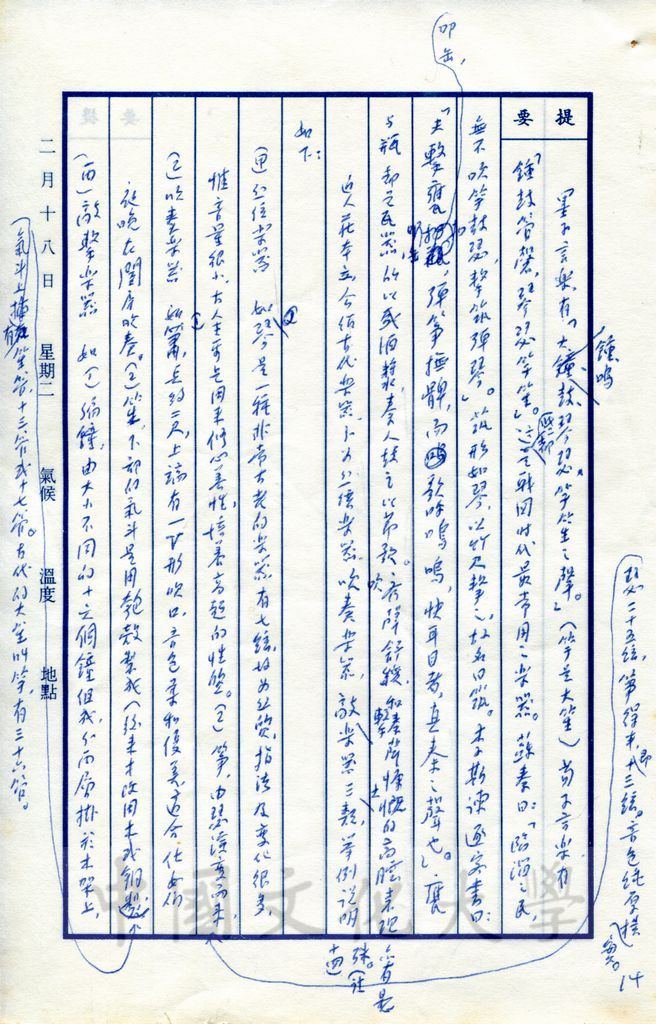 提要
墨子言樂，有「大鐘鳴鼓、琴瑟、竽笙之聲。」（竽是大笙）荀子言樂，有
「鐘鼓管磬，琴瑟竽笙。」這些都是戰國時代最常用之樂器。蘇秦曰：「臨淄之民，
無不吹竽鼓瑟，擊筑彈琴。」筑形如琴，以竹尺擊之，故名曰筑。李斯諫逐客書曰：
「夫擊甕叩缶，彈箏搏髀，而歌呼嗚嗚，快耳目者，真秦之聲也。」甕
與瓶都是瓦器，所以盛酒漿，秦人鼓之以節歌。
近人莊本立介紹古代樂器，分為絲絃樂器、吹奏樂器、敲樂器三類，舉例說明
如下：
（甲）絲絃樂器 如 琴是一種非常古老的樂器，有七絃，指法及變化很多，
惟音量很小，古人主要是用來修心養性，培養高超的性。(2)箏，由瑟演變而來
瑟二十五絃，箏得半，即十三絃。音色純厚樸
(乙)吹奏樂器 如簫，長約二尺，上端有一U形吹口，音色柔和優美，適合仕女們
夜晚在閨房吹奏。(2)笙，下部的氣斗是用匏殼製成（後來才改用木或銅製）
（氣斗上插有笙管，十三管或十七管。古代的大笙叫竽，有三十六管。
(丙)敲擊樂器 如(1)編鐘，由大小不同的十六個鐘組成，分兩層掛於木架上，
二月十八日 星期二 氣候 溫度 地點
中國文化大學
14